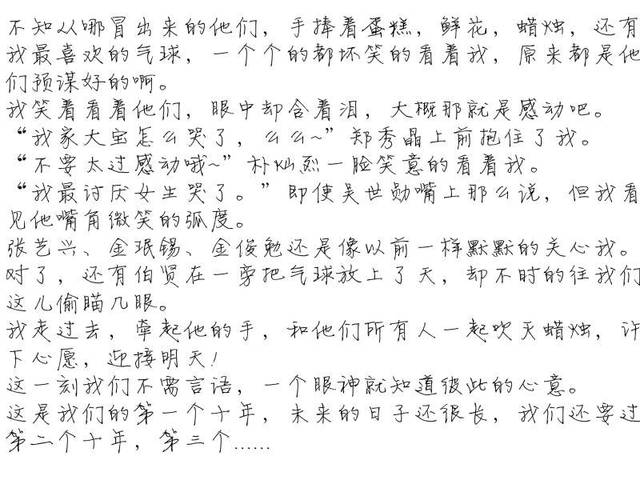 不知从哪冒出来的他们，手捧着蛋糕，鲜花，蜡烛，还有
我最喜欢的气球，一个个的都坏笑的看着我，原来都是他
们预谋好的啊。
我笑着看着他们，眼中却含着泪，大概那就是感动吧。
“我家大宝怎么哭了，么么~”郑秀晶上前抱住了我。
“不要太过感动哦~”朴灿烈一脸笑意的看着我。
“我最讨厌女生哭了。”即使吴世勋嘴上那么说，但我看
见他嘴角微笑的弧度。
张艺兴、金珉锡、金俊勉还是像以前一样默默的关心我。
对了，还有伯贤在一旁把气球放上了天，却不时的往我们
这儿偷瞄几眼。
我走过去，牵起他的手，和他们所有人一起吹灭蜡烛，许
下心愿，迎接明天！
这一刻我们不需言语，一个眼神就知道彼此的心意。
这是我们的第一个十年，未来的日子还很长，我们还要过
第二个十年，第三个……